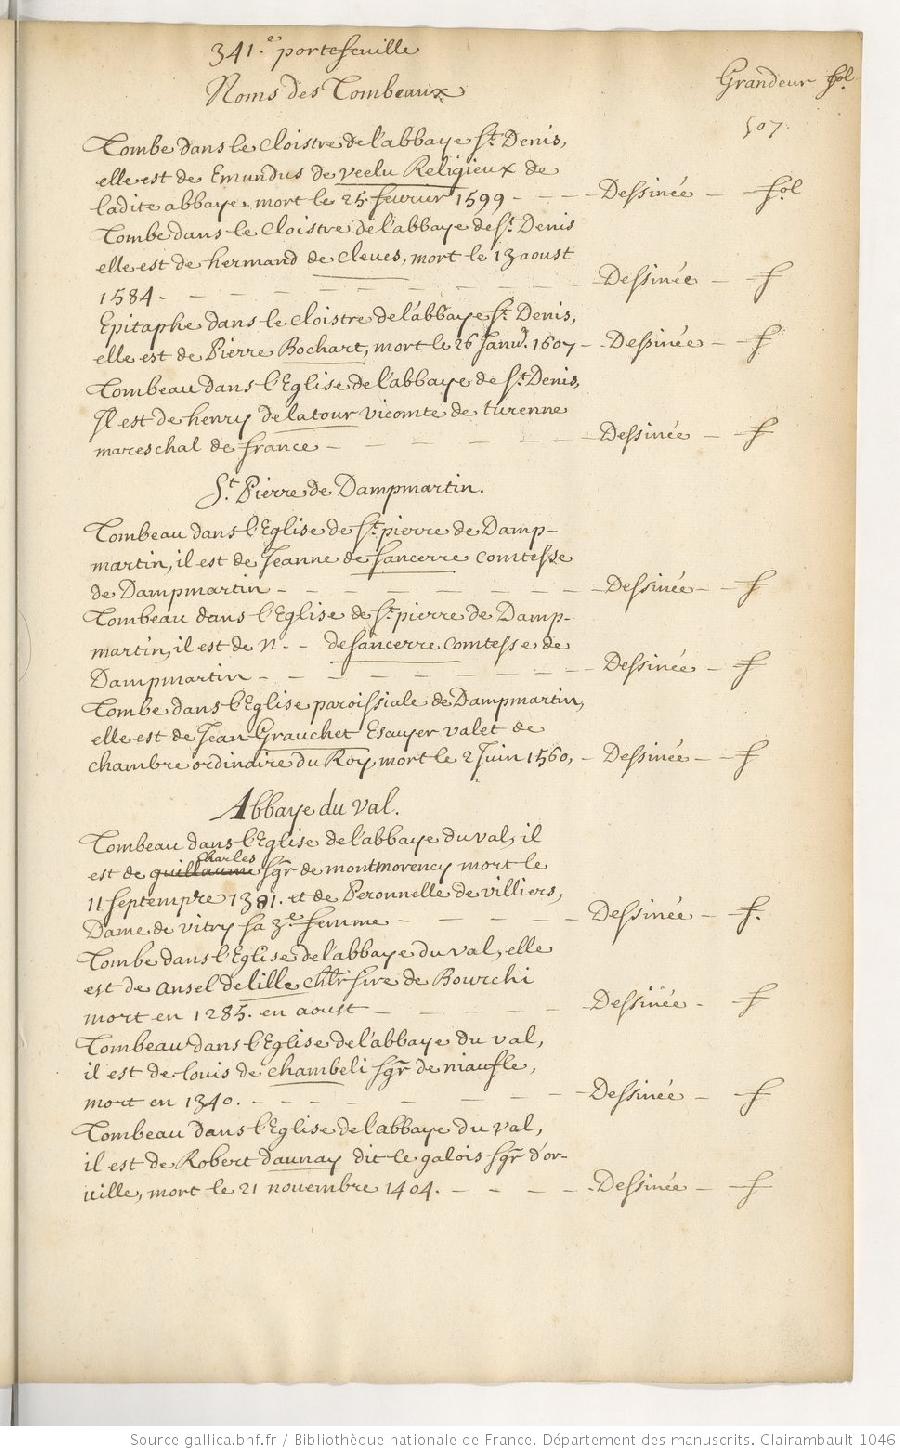 341.e portefeuille
Noms des Tombeaux
Grandeur fol.
507.
Tombe dans le Cloistre de l'abbaye St. Denis,
elle est de Emundus de veelu Religieux de
ladite abbaye, mort le 25 fevrier 1599 - - - Dessinée - fol
Tombe dans le Cloistre de l'abbaye de St. Denis
elle est de hermand de Cleves, mort le 13 aoust
1584 - - - - - - - - Dessinée - f
Epitaphe dans le Cloistre de l'abbaye St. Denis,
elle est de Pierre Bochart, mort le 26 Janv. 1607 - Dessinée - f
Tombeau dans l'Eglise de l'abbaye de St. Denis,
Il est de henry de la tour vicomte de turenne
mareschal de france - - - - - - - Dessinée - f
St. Pierre de Dampmartin.
Tombeau dans l'Eglise de St. pierre de Damp-
martin, il est de Jeanne de sancerre comtesse
de Dampmartin - - - - - - - - Dessinée - f
Tombeau dans l'Eglise de St. pierre de Damp-
martin, il est de N. - de sancerre comtesse de
Dampmartin - - - - - - - - Dessinée - f
Tombe dans l'Eglise paroissiale de Dampmartin,
elle est de Jean Grauchet Escuyer valet de
chambre ordinaire du Roy, mort le 2 Juin 1560, - Dessinée - f
Abbaye du val.
Tombeau dans l'Eglise de l'abbaye du val, il
est de guillaume Charles sgr de montmorency mort le
11 septempre 1381. et de Peronnelle de villiers,
Dame de vitry sa 3e. femme - - - - - Dessinée - f.
Tombe dans l'Eglise de l'abbaye du val, elle
est de ansel de lille chlr sire de Bourchi
mort en 1285. en aoust - - - - - Dessinée - f
Tombeau dans l'Eglise de l'abbaye du val,
il est de louis de chambeli sgr de niaufle,
mort en 1340. - - - - - - - Dessinée - f
Tombeau dans l'Eglise de l'abbaye du val,
il est de Robert daunay dit le galois sgr d'or-
uille, mort le 21 novembre 1404. - - - - Dessinée - f
Source gallica.bnf.fr / Bibliothèque nationale de France. Département des manuscrits. Clairambault 1046